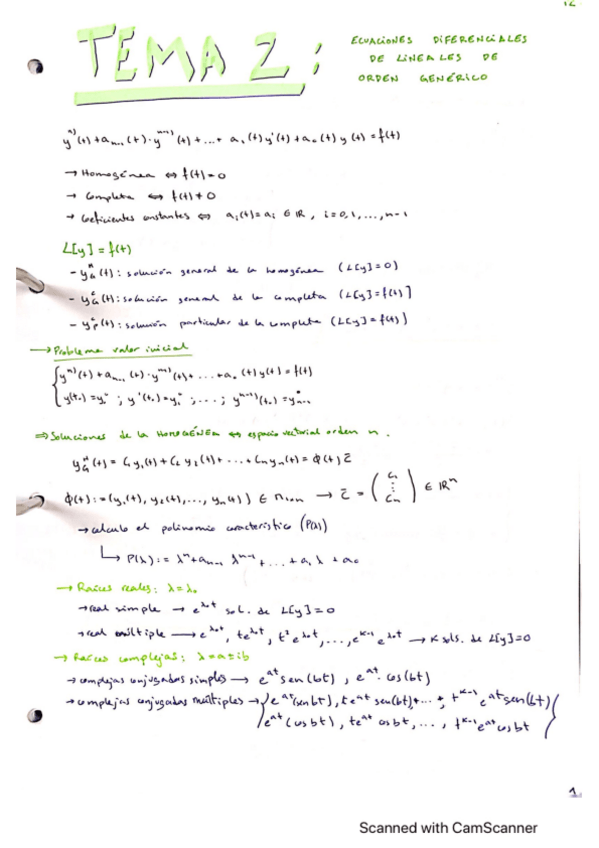 TEMA 2:
ECUACIONES DIFERENCIALES
DE LINEALES DE
ORDEN GENÉRICO
yⁿ⁾(t) + aₙ₋₁(t)·yⁿ⁻¹⁾(t) + ... + a₁(t)y'(t) + a₀(t)y(t) = f(t)
→ Homogénea ⇔ f(t)=0
→ Completa ⇔ f(t)≠0
→ Coeficientes constantes ⇔ aᵢ(t)=aᵢ ∈ ℝ, i=0,1,...,n-1
L[y] = f(t)
- y_G^H(t): solución general de la homogénea (L[y]=0)
- y_G^c(t): solución general de la completa (L[y]=f(t)]
- y_P^c(t): solución particular de la completa (L[y]=f(t)]
→ Problema valor inicial
{yⁿ⁾(t) + aₙ₋₁(t)·yⁿ⁻¹⁾(t) + ... + a₀(t)y(t) = f(t)
y(t₀)=y₀; y'(t₀)=y₁; ...; yⁿ⁻¹⁾(t₀)=yₙ₋₁
⇒ Soluciones de la HOMOGÉNEA ↔ espacio vectorial orden n.
y_G^H(t) = C₁y₁(t) + C₂y₂(t) + ... + Cₙyₙ(t) = Φ(t) c̄
Φ(t) := (y₁(t), y₂(t), ..., yₙ(t)) ∈ → c̄ = (C₁ ⋮ Cₙ) ∈ ℝⁿ
→ calculo el polinomio característico (P(λ))
↳ P(λ) := λⁿ + aₙ₋₁ λⁿ⁻¹ + ... + a₁ λ + a₀
→ Raíces reales: λ=λ₀
→ real simple → e^λ₀t sol. de L[y]=0
→ real múltiple → e^λ₀t, te^λ₀t, t²e^λ₀t, ..., t^k-1 e^λ₀t → K sols. de L[y]=0
→ Raíces complejas: λ=a±ib
→ complejas conjugadas simples → e^at sen(bt), e^at·cos(bt)
→ complejas conjugadas múltiples → {e^at(sen bt), te^at sen(bt), ..., t^k-1 e^at sen(bt)
e^at(cos bt), te^at cos bt, ..., t^k-1 e^at cos bt}
1
Scanned with CamScanner